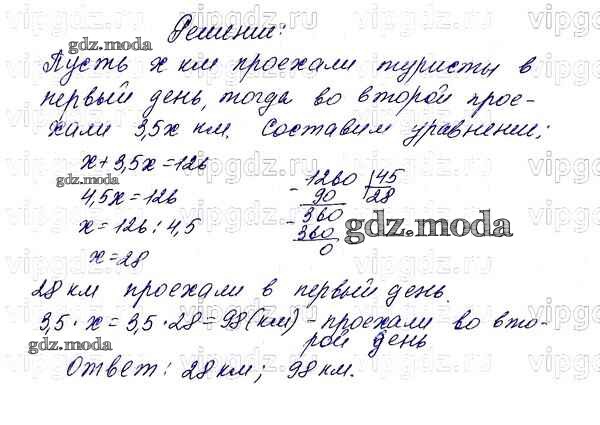 Решение:
Пусть x км проехали туристы в
первый день, тогда во второй прое-
хали 3,5x км. Составим уравнение:
x + 3,5x = 126
4,5x = 126
x = 126 : 4,5
x = 28
1260 | 45
- 90 28
- 360
360
0
28 км проехали в первый день.
3,5 · x = 3,5 · 28 = 98 (км) - проехали во вто-
рой день
Ответ: 28 км; 98 км.
gdz.moda
gdz.moda
gdz.moda
gdz.moda
vipgdz